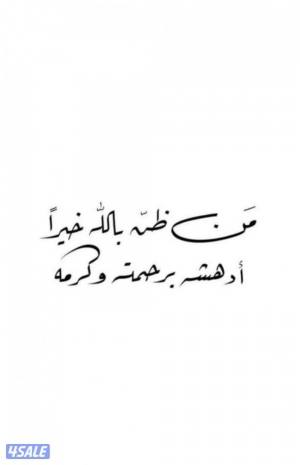 مَن ظنّ بالله خيراً
أدهشه برحمته وكرمه
4SALE